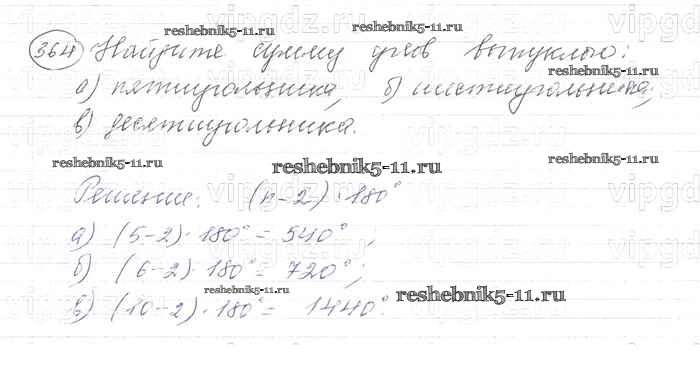 reshebnik5-11.ru reshebnik5-11.ru
vipgdz.ru
364 Найдите сумму углов выпуклого:
reshebnik5-11.ru
а) пятиугольника, б) шестиугольника,
в) десятиугольника.
reshebnik5-11.ru reshebnik5-11.ru reshebnik5-11.ru
Решение: (n-2)·180°
а) (5-2)·180° = 540°;
б) (6-2)·180° = 720°;
reshebnik5-11.ru reshebnik5-11.ru
в) (10-2)·180° = 1440°.